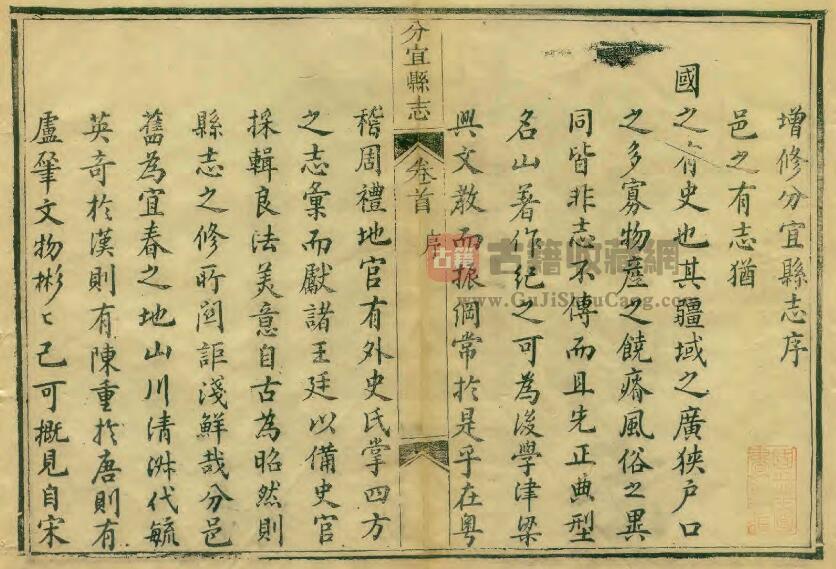 增修分宜縣志序
邑之有志猶
國之有史也其疆域之廣狹户口
之多寡物產之饒瘠風俗之異
同皆非志不傳而且先正典型
名山著作紀之可為後學津梁
興文教而振綱常於是乎在粤
分宜縣志
卷首
序
稽周禮地官有外史氏掌四方
之志彙而獻諸王廷以備史官
採輯良法美意自古為昭然則
縣志之修所關詎淺鮮哉分邑
舊為宜春之地山川清淑代毓
英奇於漢則有陳重於唐則有
盧肇文物彬〻已可概見自宋
古籍
古籍收藏網
www.GuJiShuCang.com